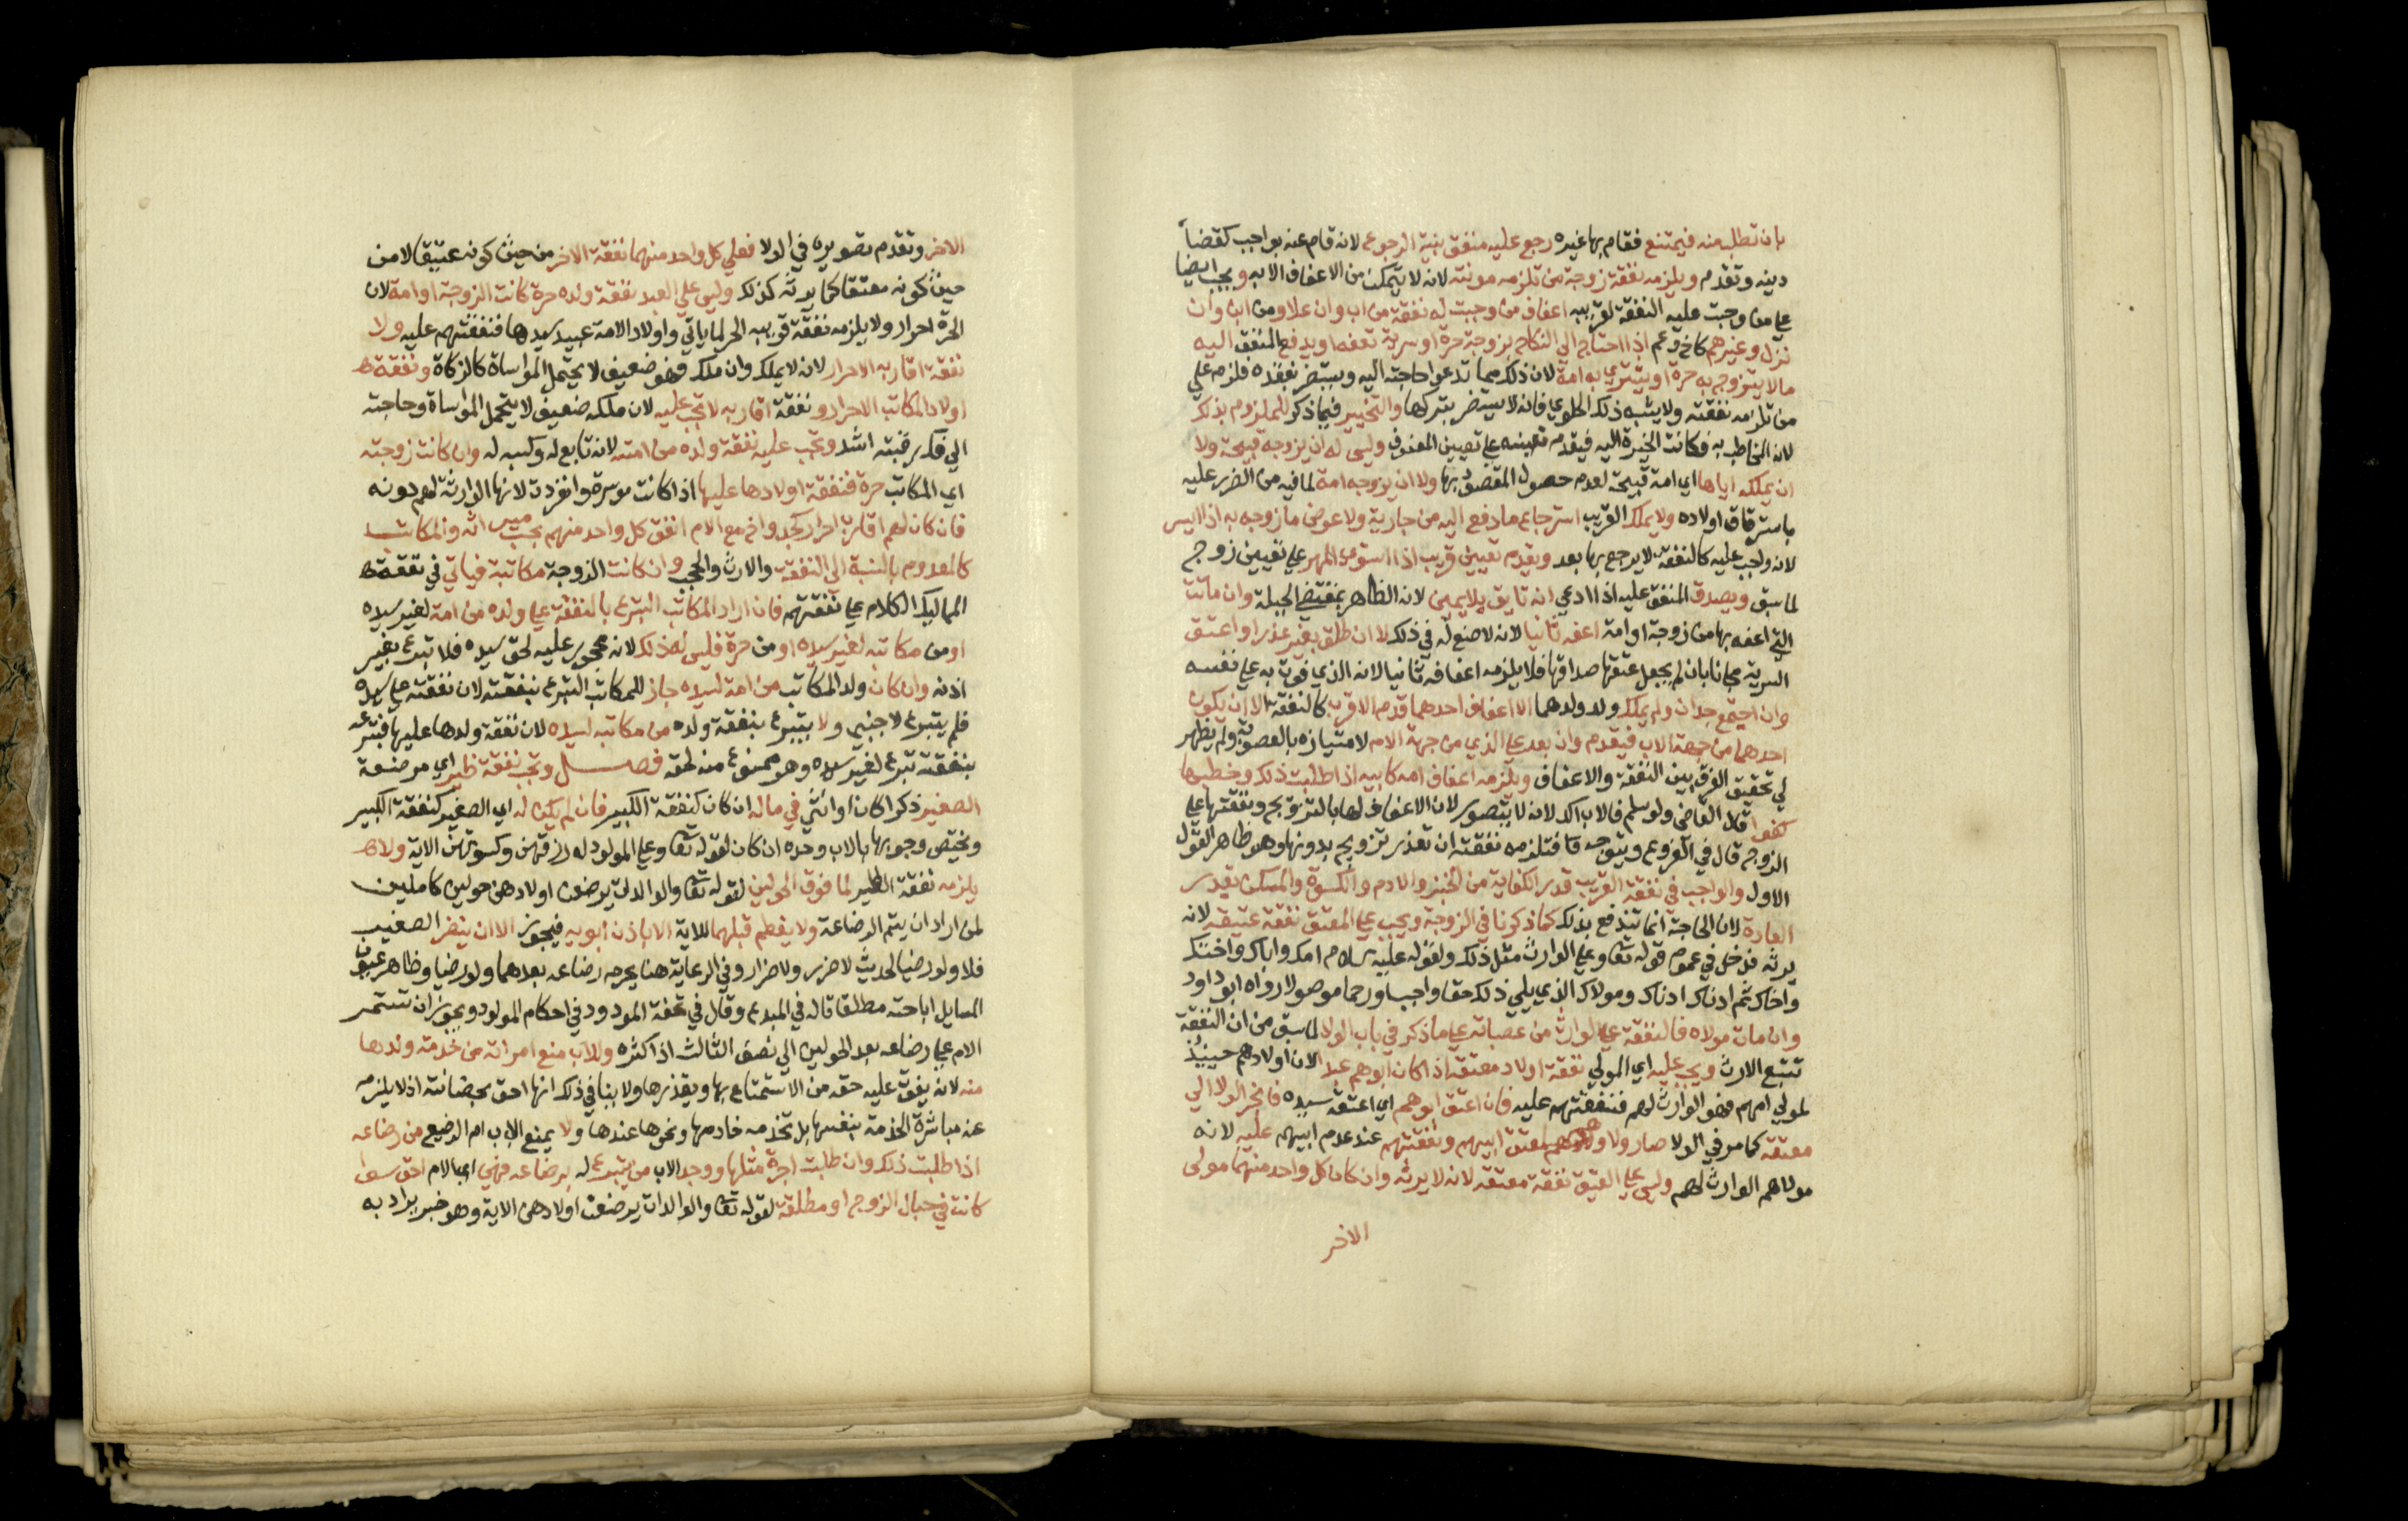 بان تطلبه منه فيمتنع فقام بها غيره رجع عليه منفق بنية الرجوع لانه قام عنه بواجب كقضاء
دينه وتقدم ويلزمه نفقة زوجة من تلزمه مونته لانه لا يتمكن من الاعفاف الا به ويجب ايضا
على من وجبت عليه النفقة لقريبه اعفاف من وجبت له نفقة من اب وان علا ومن ابن وان
نزل وغيرهم كاخ وعم اذا احتاج الى النكاح بزوجة حرة او سرية تعفه او يدفع المنفق اليه
مالا يتزوج به حرة او يشتري به امة لان ذلك مما تدعوا حاجته اليه ويستضر بفقده فلزم على
من تلزمه نفقته ولا يشبه ذلك الحلوى فانه لا يستضر بتركها والتخيير فيما ذكر للملزوم بذلك
لانه المخاطب به فكانت الخيرة اليه فيقدم تعيينه على تعيين المعفوف وليس له ان يزوجه قبيحة ولا
ان يملكه اياها اي امة قبيحة لعدم حصول المقصود بها ولا ان يزوجه امة لما فيه من الضرر عليه
باسترقاق اولاده ولا يملك القريب استرجاع ما دفع اليه من جارية ولا عوض ما زوجه به اذا ايسر
لانه واجب عليه كالنفقة لا يرجع بها بعد ويقدم تعيين قريب اذا استوى المهر على تعيين زوج
لما سبق ويصدق المنفق عليه اذا ادعى انه تايق بلا يمين لانه الظاهر بمقتضى الجبلة وان ماتت
التي اعفه بها من زوجة او امة اعفه ثانيا لانه لا صنع له في ذلك لا ان طلق بغير عذر او اعتق
السرية مجانا بان لم يجعل عتقها صداقها فلا يلزمه اعفافه ثانيا لانه الذي فوت به على نفسه
وان اجتمع جدان ولم يملك ولد ولدهما الا اعفاف احدهما قدم الاقرب كالنفقة الا ان يكون
احدهما من جهة الاب فيقدم وان بعد على الذي من جهة الام لامتيازه بالعصوبة ولم يظهر
لي تحقيق الفرق بين النفقة والاعفاف ويلزمه اعفاف امه كابيه اذا طلبت ذلك وخطبها
كفو قال القاضي ولو سلم فالاب اكد لانه لا يتصور لان الاعفاف لها بالتزويج ونفقتها على
الزوج قال في الفروع ويتوجه فتلزمه نفقته ان تعذر تزويج بدونها وهو ظاهر القول
الاول والواجب في نفقة القريب قدر الكفاية من الخبز والادم والكسوة والمسكن بقدر
العادة لان الحاجة انما تندفع بذلك كما ذكرنا في الزوجة ويجب على المعتق نفقة عتيقه لانه
يرثه فدخل في عموم قوله تعا وعلى الوارث مثل ذلك ولقوله عليه السلام امك واباك واختك
واخاك ثم ادناك ادناك ومولاك الذي يلي ذلك حقا واجبا ورحما موصولا رواه ابو داود
وان مات مولاه فالنفقة على الوارث من عصباته على ما ذكر في باب الولا لما سبق من ان النفقة
تتبع الارث ويجب عليه اي المولى نفقة اولاد معتقة اذا كان ابوهم عبدا لان اولادهم حينيذ
لمولى امهم فهو الوارث لهم فنفقتهم عليه فان اعتق ابوهم اي اعتقه سيده فانجر الولا الى
معتقه كما مر في الولا صار ولاوهم لمعتق ابيهم ونفقتهم عند عدم ابيهم عليه لانه
مولاهم الوارث لهم وليس على العتيق نفقة معتقه لانه لا يرثه وان كان كل واحد منهما مولى
الاخر
الاخر وتقدم تصويره في الولا فعلى كل واحد منهما نفقة الاخر من حيث كونه عتيقا لا من
حيث كونه معتقا كما يرثه كذلك وليس على العبد نفقة ولده حرة كانت الزوجة او امة لان
الحرة احرار ولا يلزمه نفقة قريبه الحر لما ياتي واولاد الامة عبيد سيدها فنفقتهم عليه ولا
نفقة اقاربه الاحرار لانه لا يملك وان ملك فهو ضعيف لا يحتمل المواساة كالزكاة ونفقة
اولاد المكاتب الاحرار ونفقة اقاربه لا تجب عليه لان ملكه ضعيف لا يتحمل المواساة وحاجته
الى فك رقبته اشد وتجب عليه نفقة ولده من امته لانه تابع له وكسبه له وان كانت زوجته
اي المكاتب حرة فنفقة اولادها عليها اذا كانت موسرة وانفردت لانها الوارثة لهم دونه
فان كان لهم اقارب احرار كجد واخ مع الام انفق كل واحد منهم بحسب ميراثه والمكاتب
كالمعدوم بالنسبة الى النفقة والارث والحجب وان كانت الزوجة مكاتبة فياتي في نفقة
المماليك الكلام على نفقتهم فان اراد المكاتب التبرع بالنفقة على ولده من امة لغير سيده
او من مكاتبة لغير سيده او من حرة فليس له ذلك لانه محجور عليه لحق سيده فلا تبرع بغير
اذنه وان كان ولد المكاتب من امة لسيده جاز للمكاتب التبرع بنفقته لان نفقته على سيده
فلم يتبرع لاجنبي ولا يتبرع بنفقة ولده من مكاتبة لسيده لان نفقة ولدها عليها فتبرعه
بنفقته تبرع لغير سيده وهو ممنوع منه لحقه فصل وتجب نفقة ظير اي مرضعة
الصغير ذكرا كان او انثى في ماله ان كان كنفقة الكبير فان لم يكن له اي الصغير كنفقة الكبير
ويختص وجوبها بالاب وحده ان كان لقوله تعا وعلى المولود له رزقهن وكسوتهن الاية ولا
يلزمه نفقة الظير لما فوق الحولين لقوله تعا والوالدات يرضعن اولادهن حولين كاملين
لمن اراد ان يتم الرضاعة ولا يفطم قبلهما للاية الا باذن ابويه فيجوز الا ان يتضر الصغير
فلا ولو رضيا لحديث لا ضرر ولا ضرار وفي الرعاية هنا يحرم رضاعه بعدهما ولو رضيا وظاهر عيون
المسايل اباحته مطلقا قاله في المبدع وقال في تحفة المودود في احكام المولود ويجوز ان تستمر
الام على رضاعه بعد الحولين الى نصف الثالث او اكثره وللاب منع امراته من خدمة ولدها
منه لانه يفوت عليه حقه من الاستمتاع بها ويقذرها ولا ينافي ذلك انها احق بحضانته اذ لا يلزم
عنه مباشرة الخدمة بنفسها بل تخدمه خادمها ونحوها عندها ولا يمنع الاب ام الرضيع من رضاعه
اذا طلبت ذلك وان طلبت اجرة مثلها ووجد الاب من يتبرع له برضاعه فهي اي الام احق سوا
كانت في حبال الزوج او مطلقة لقوله تعا والوالدات يرضعن اولادهن الاية وهو خبر يراد به